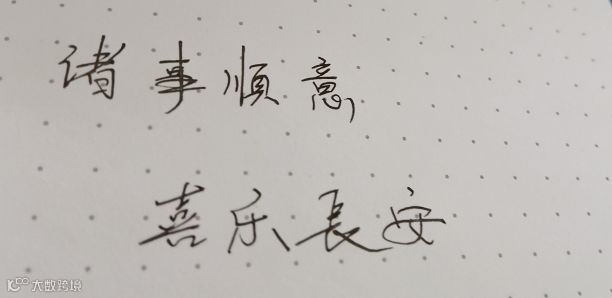 诸事順意,
喜乐長安
大数跨境